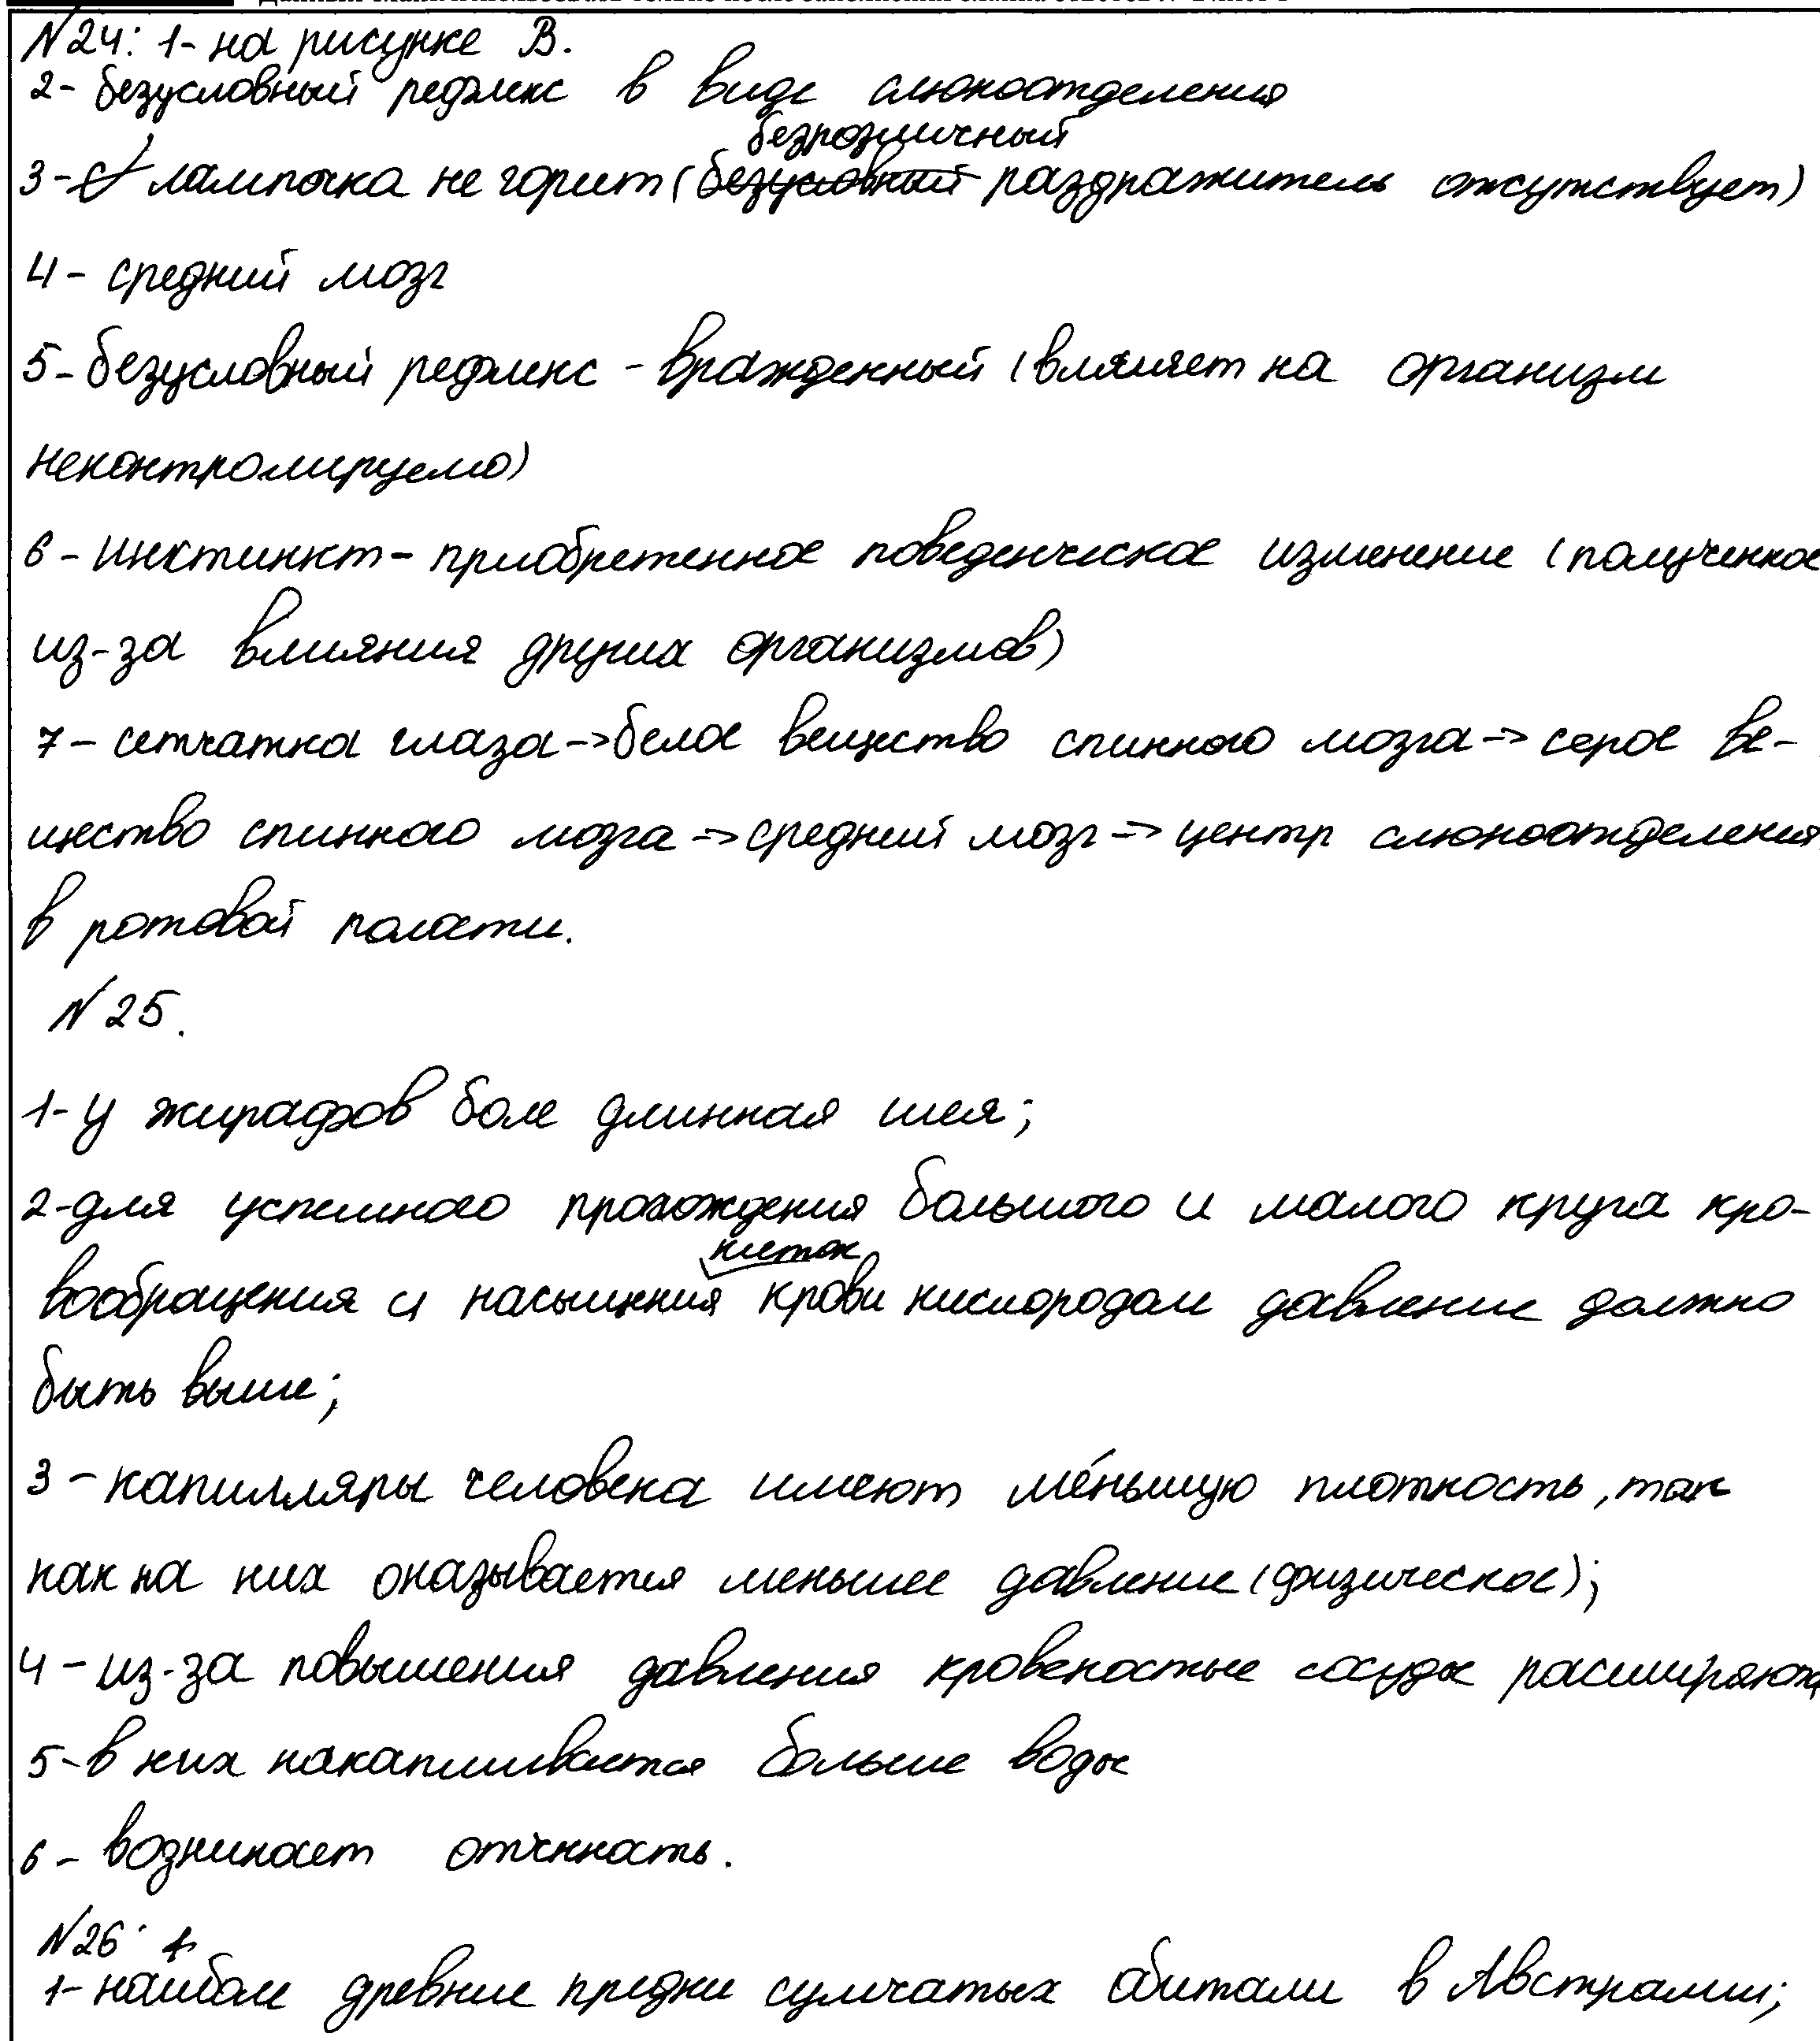 №24: 1- на рисунке В.
2- безусловный рефлекс в виде слюноотделения
безразличный
3- лампочка не горит (безусловный раздражитель отсутствует)
4 - средний мозг
5 - безусловный рефлекс - врожденный (влияет на организм
неконтролируемо)
6 - инстинкт - приобретенное поведенческое изменение (полученное
из-за влияния других организмов)
7 - сетчатка глаза -> белое вещество спинного мозга -> серое ве-
щество спинного мозга -> средний мозг -> центр слюноотделения
в ротовой полости.
№ 25.
1- у жирафов боле длинная шея;
2- для успешного прохождения большого и малого круга кро-
клеток
вообращения и насыщения крови кислородом давление должно
быть выше;
3 - капилляры человека имеют ме́ньшую плотность, так
как на них оказывается меньшее давление (физическое);
4 - из-за повышения давления кровеностые сосуды расширяются
5 - в них накапливается больше воды
6 - возникает отечность.
№26:
1- наиболе древние предки сумчатых обитали в Австралии;